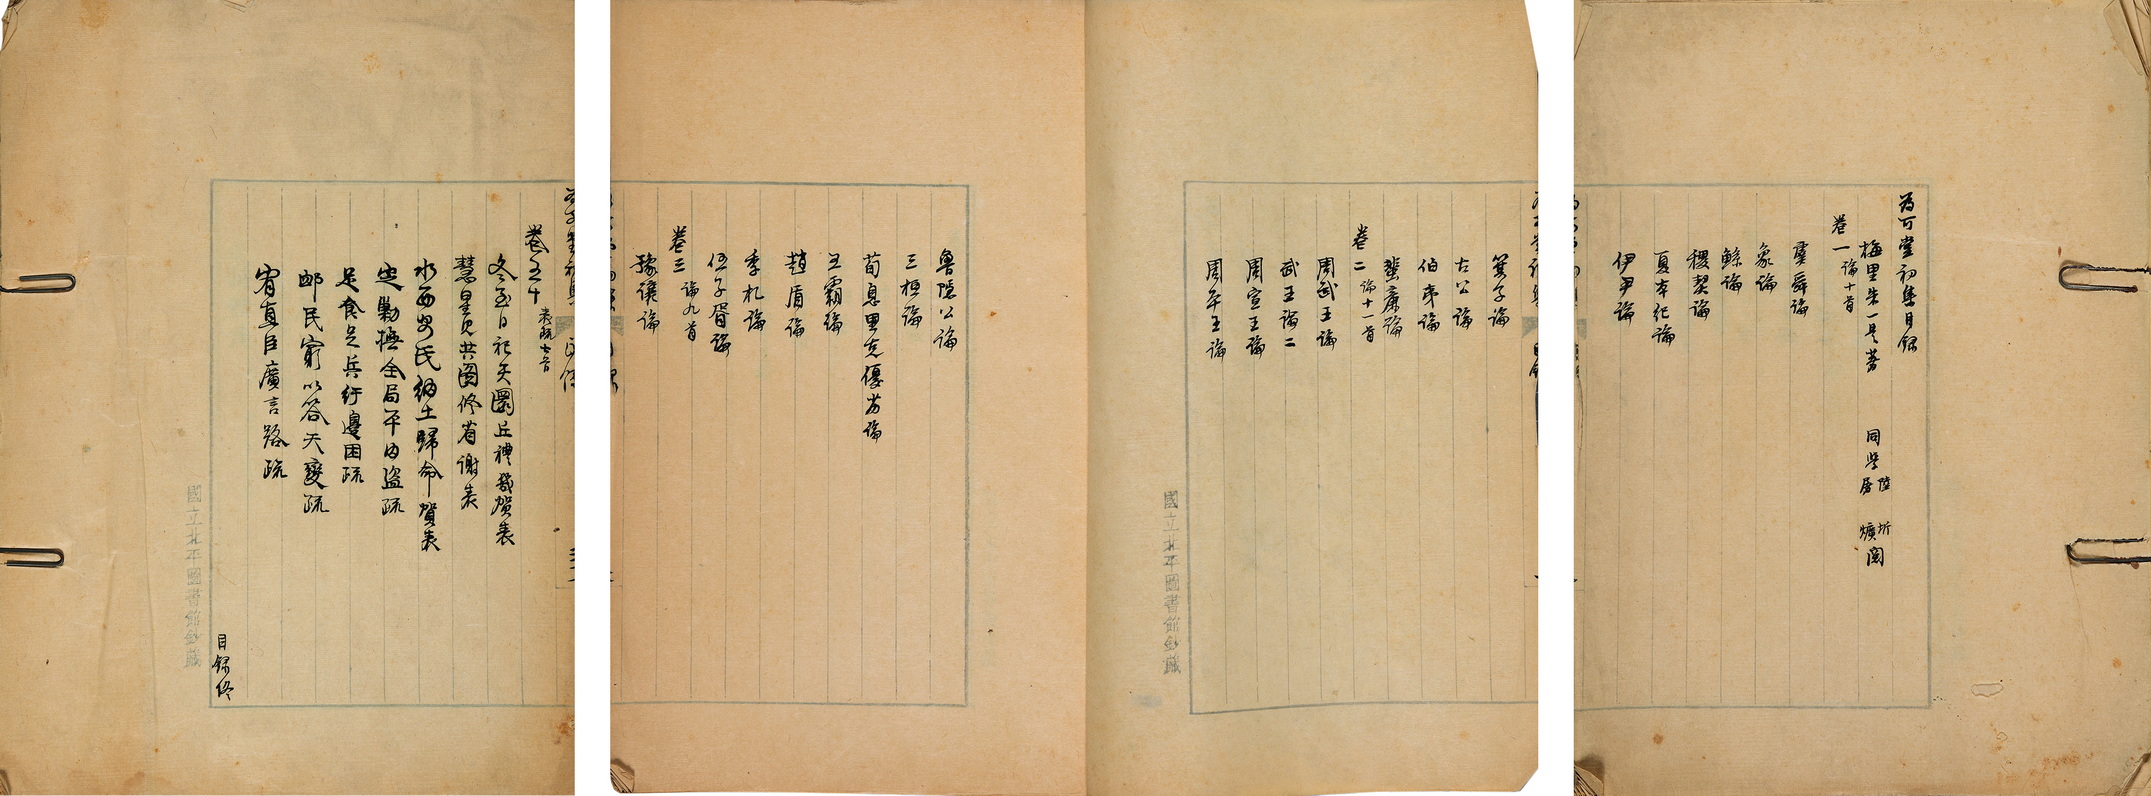 為可堂初集目録
梅里朱一是著 同學 陸圻 房爌 閲
卷一 論十首
虞舜論
象論
鯀論
稷契論
夏本紀論
伊尹論
箕子論
古公論
伯夷論
蜚廉論
卷二 論十一首
周武王論
武王論二
周宣王論
周平王論
國立北平圖書館鈔藏
魯隱公論
三桓論
荀息里克優劣論
五霸論
趙盾論
季札論
伍子胥論
卷三 論九首
豫讓論
卷五十 表疏七首
冬至日祀天圜丘禮成賀表
慧星見共圖修省謝表
水西安氏納土歸命賀表
定勦撫全局平内盜疏
足食足兵紓邊困疏
卹民窮以答天變疏
宥直臣廣言路疏
目録終
國立北平圖書館鈔藏